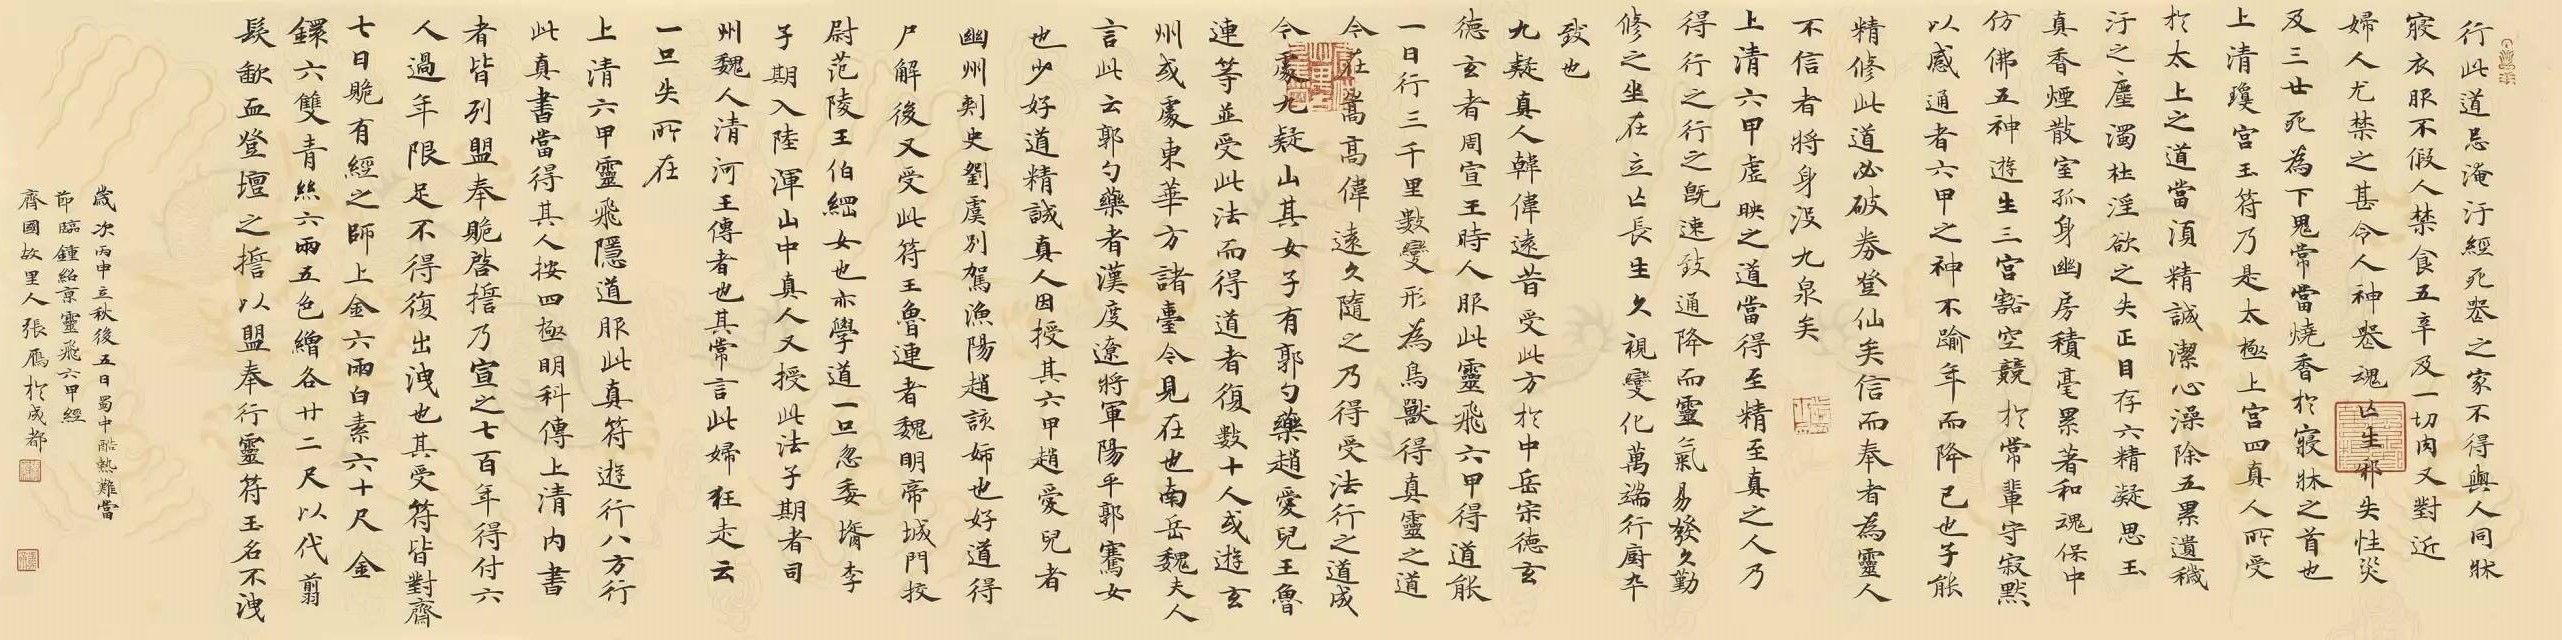 行此道忌淹汙經死喪之家不得與人同牀
寢衣服不假人禁食五辛及一切肉又對近
婦人尤禁之甚令人神喪魂亡生邪失性災
及三世死為下鬼常當燒香於寢牀之首也
上清瓊宮玉符乃是太極上宮四真人所受
於太上之道當須精誠潔心澡除五累遺穢
汙之塵濁杜淫欲之失正目存六精凝思玉
真香煙散室孤身幽房積毫累著和魂保中
仿佛五神遊生三宮豁空競於常輩守寂默
以感通者六甲之神不踰年而降已也子能
精修此道必破券登仙矣信而奉者為靈人
不信者將身沒九泉矣
上清六甲虛映之道當得至精至真之人乃
得行之行之既速致通降而靈氣易發久勤
修之坐在立亡長生久視變化萬端行廚卒
致也
九疑真人韓偉遠昔受此方於中岳宗德玄
德玄者周宣王時人服此靈飛六甲得道能
一日行三千里數變形為鳥獸得真靈之道
今在嵩高偉遠久隨之乃得受法行之道成
今處九疑山其女子有郭勺藥趙愛兒王魯
連等並受此法而得道者復數十人或遊玄
州或處東華方諸臺今見在也南岳魏夫人
言此云郭勺藥者漢度遼將軍陽平郭騫女
也少好道精誠真人因授其六甲趙愛兒者
幽州刺史劉虞別駕漁陽趙該姊也好道得
尸解後又受此符王魯連者魏明帝城門校
尉范陵王伯綱女也亦學道一旦忽委壻李
子期入陸渾山中真人又授此法子期者司
州魏人清河王傳者也其常言此婦狂走云
一旦失所在
上清六甲靈飛隱道服此真符遊行八方行
此真書當得其人按四極明科傳上清內書
者皆列盟奉贶啓誓乃宣之七百年得付六
人過年限足不得復出洩也其受符皆對齋
七日贶有經之師上金六兩白素六十尺金
鐶六雙青絲六兩五色繒各廿二尺以代翦
髮歃血登壇之誓以盟奉行靈符玉名不洩
歲次丙申立秋後五日蜀中酷熱難當
節臨鍾紹京靈飛六甲經
齊國故里人張雁於成都